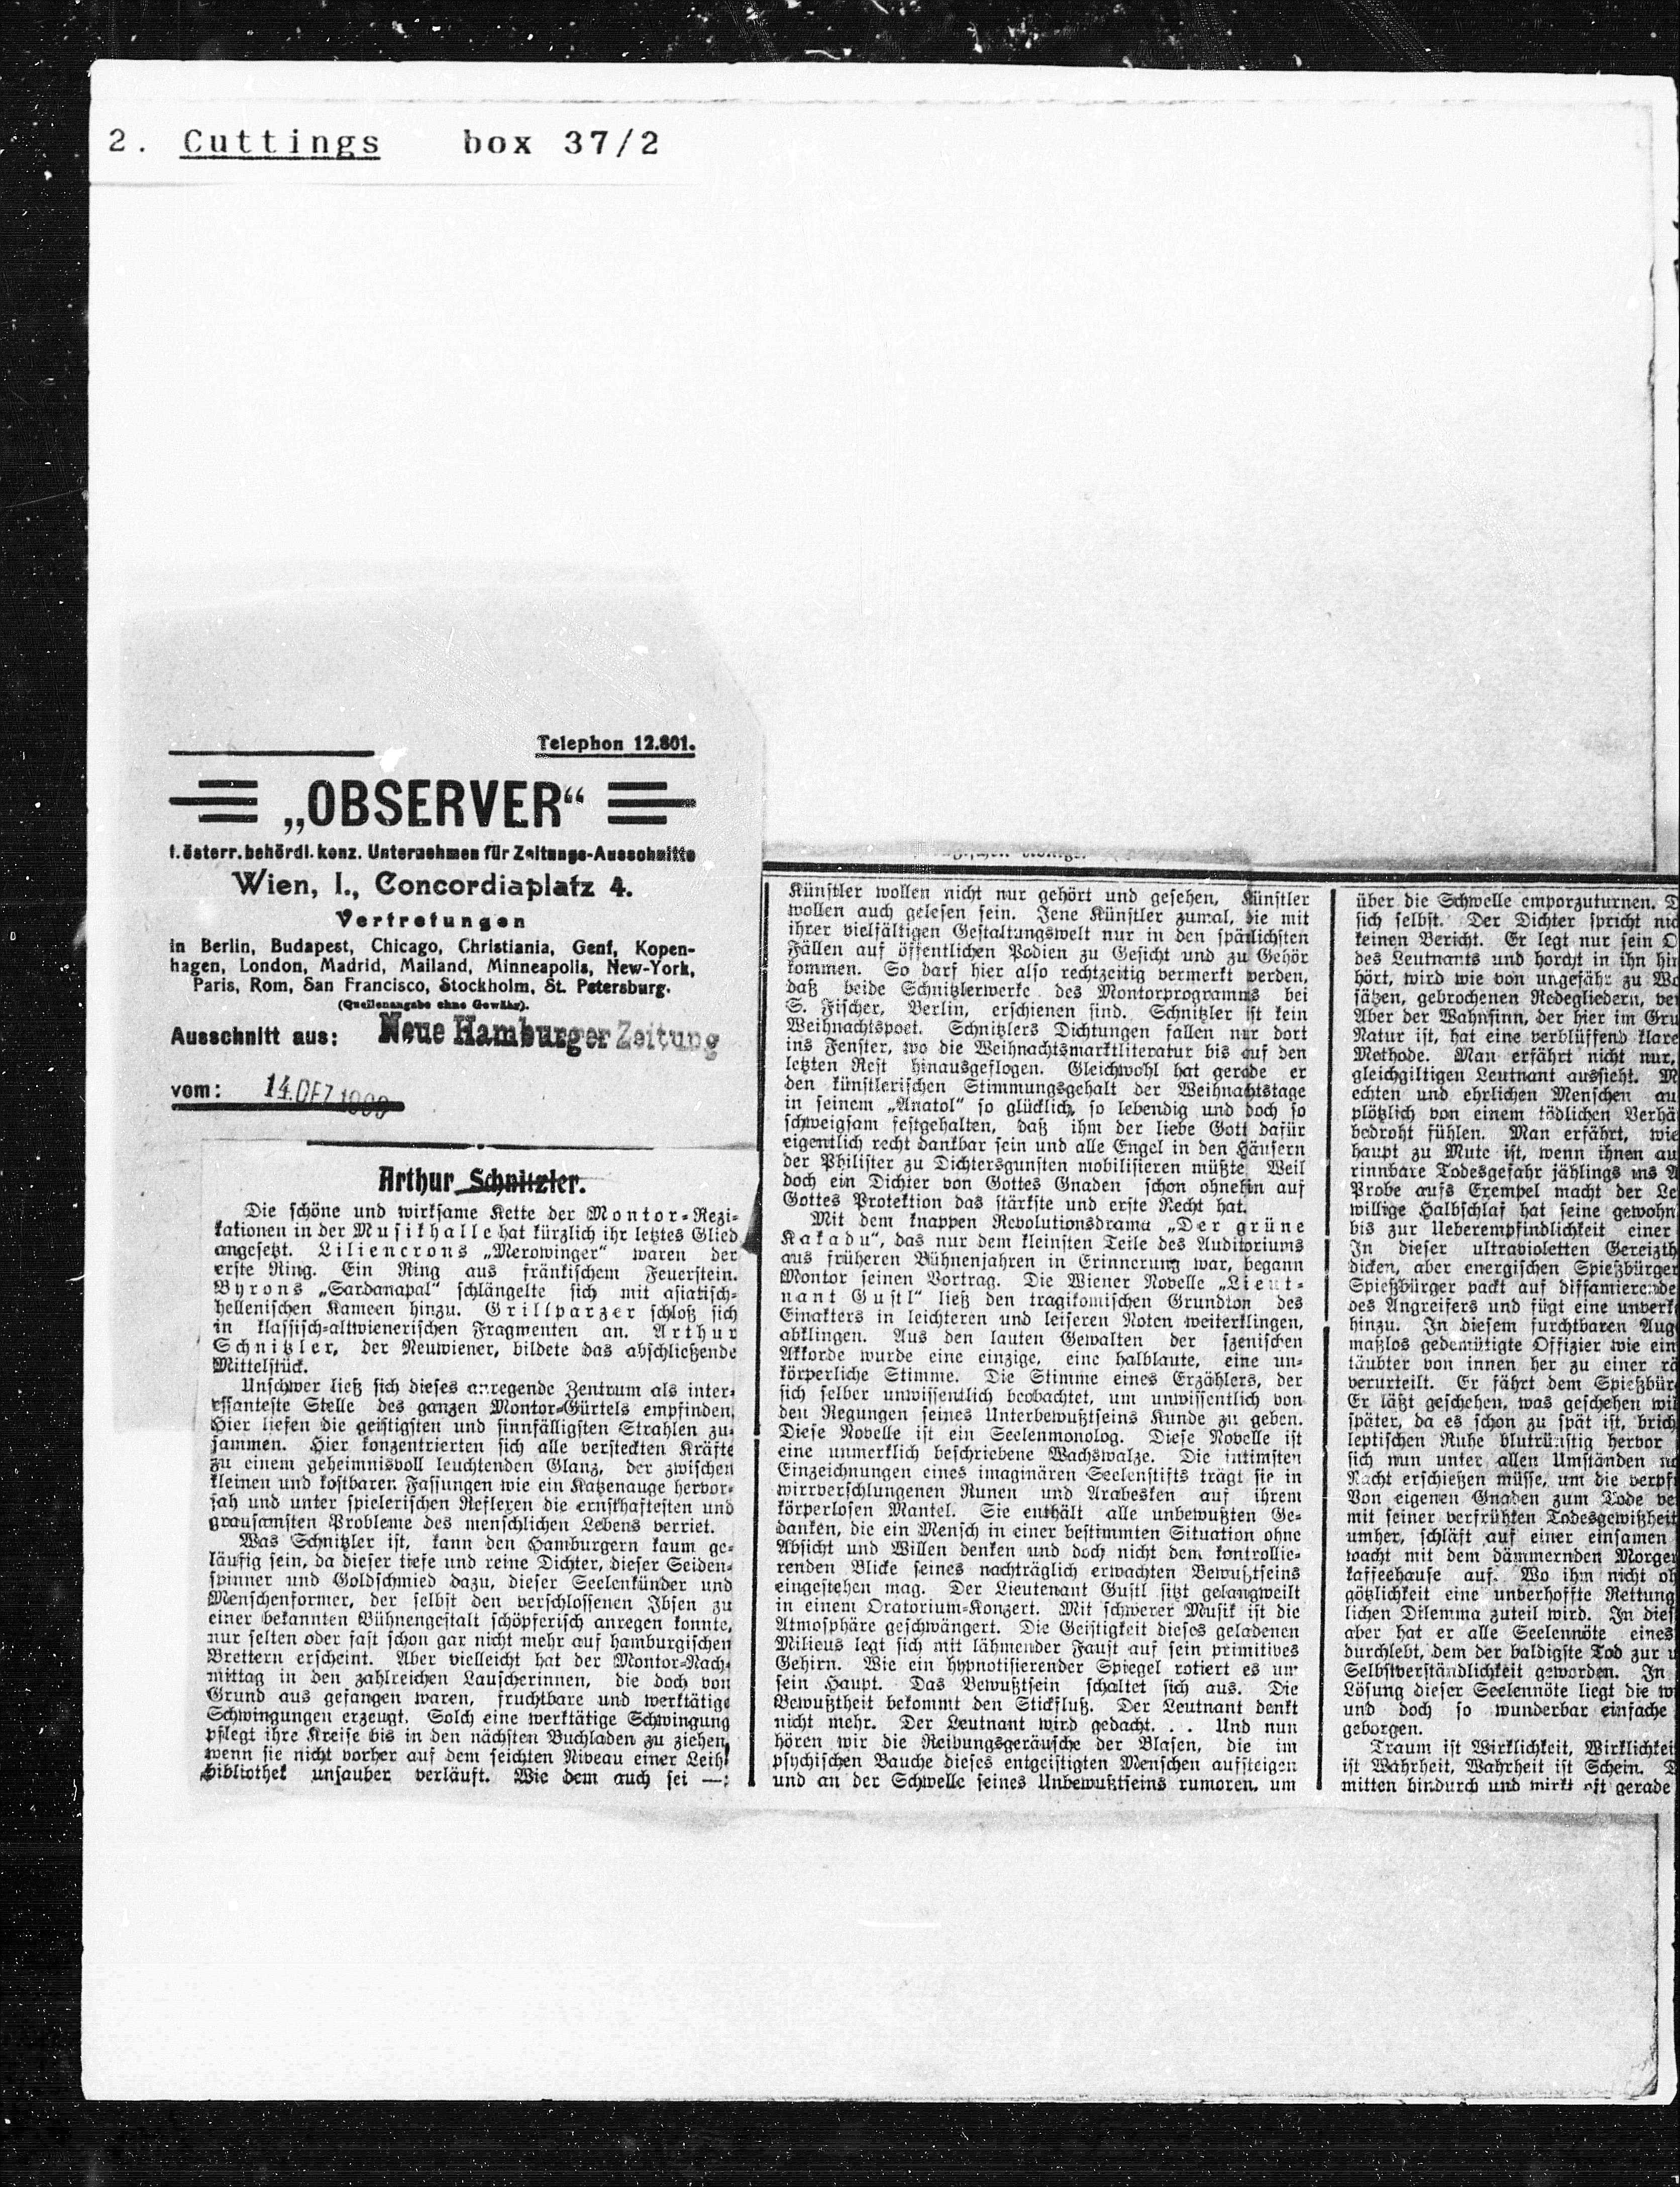 2. Cuttings box 37/2
Telephon 12.801.
„OBSERVER“
I. österr. behördl. konz. Unternehmen für Zeitungs-Ausschnitte
Wien, I., Concordiaplatz 4.
Vertretungen
in Berlin, Budapest, Chicago, Christiania, Genf, Kopen-
hagen, London, Madrid, Mailand, Minneapolis, New-York,
Paris, Rom, San Francisco, Stockholm, St. Petersburg.
(Quellenangabe ohne Gewähr).
Ausschnitt aus: Neue Hamburger Zeitung
vom: 14. DEZ 1909
Arthur Schnitzler.
Die schöne und wirksame Kette der Montor-Rezi-
tationen in der Musikhalle hat kürzlich ihr letztes Glied
angesetzt. Liliencrons „Merowinger“ waren der
erste Ring. Ein Ring aus fränkischem Feuerstein.
Byrons „Sardanapal“ schlängelte sich mit asiatisch-
hellenischen Kameen hinzu. Grillparzer schloß sich
in klassisch-altwienerischen Fragmenten an. Arthur
Schnitzler, der Neuwiener, bildete das abschließende
Mittelstück.
Unschwer ließ sich dieses anregende Zentrum als inter-
essanteste Stelle des ganzen Montor-Gürtels empfinden.
Hier liefen die geistigsten und sinnfälligsten Strahlen zu-
sammen. Hier konzentrierten sich alle versteckten Kräfte
zu einem geheimnisvoll leuchtenden Glanz, der zwischen
kleinen und kostbaren Fassungen wie ein Katzenauge hervor-
sah und unter spielerischen Reflexen die ernsthaftesten und
grausamsten Probleme des menschlichen Lebens verriet.
Was Schnitzler ist, kann den Hamburgern kaum ge-
läufig sein, da dieser tiefe und reine Dichter, dieser Seiden-
spinner und Goldschmied dazu, dieser Seelenkünder und
Menschenformer, der selbst den verschlossenen Ibsen zu
einer bekannten Bühnengestalt schöpferisch anregen konnte,
nur selten oder fast schon gar nicht mehr auf hamburgischen
Brettern erscheint. Aber vielleicht hat der Montor-Nach-
mittag in den zahlreichen Lauscherinnen, die doch von
Grund aus gefangen waren, fruchtbare und werktätige
Schwingungen erzeugt. Solch eine werktätige Schwingung
pflegt ihre Kreise bis in den nächsten Buchladen zu ziehen,
wenn sie nicht vorher auf dem seichten Niveau einer Leih-
bibliothek unsauber verläuft. Wie dem auch sei —:
Künstler wollen nicht nur gehört und gesehen, Künstler
wollen auch gelesen sein. Jene Künstler zumal, die mit
ihrer vielfältigen Gestaltungswelt nur in den spärlichsten
Fällen auf öffentlichen Podien zu Gesicht und zu Gehör
kommen. So darf hier also rechtzeitig vermerkt werden,
daß beide Schnitzlerwerke des Montorprogramms bei
S. Fischer, Berlin, erschienen sind. Schnitzler ist kein
Weihnachtspoet. Schnitzlers Dichtungen fallen nur dort
ins Fenster, wo die Weihnachtsmarktliteratur bis auf den
letzten Rest hinausgeflogen. Gleichwohl hat gerade er
den künstlerischen Stimmungsgehalt der Weihnachtstage
in seinem „Anatol“ so glücklich, so lebendig und doch so
schweigsam festgehalten, daß ihm der liebe Gott dafür
eigentlich recht dankbar sein und alle Engel in den Häusern
der Philister zu Dichtersgunsten mobilisieren müßte. Weil
doch ein Dichter von Gottes Gnaden schon ohnehin auf
Gottes Protektion das stärkste und erste Recht hat.
Mit dem knappen Revolutionsdrama „Der grüne
Kakadu“, das nur dem kleinsten Teile des Auditoriums
aus früheren Bühnenjahren in Erinnerung war, begann
Montor seinen Vortrag. Die Wiener Novelle „Lieut-
nant Gustl“ ließ den tragikomischen Grundton des
Einakters in leichteren und leiseren Noten weiterklingen,
abklingen. Aus den lauten Gewalten der szenischen
Akkorde wurde eine einzige, eine halblaute, eine un-
körperliche Stimme. Die Stimme eines Erzählers, der
sich selber unwissentlich beobachtet, um unwissentlich von
den Regungen seines Unterbewußtseins Kunde zu geben.
Diese Novelle ist ein Seelenmonolog. Diese Novelle ist
eine unmerklich beschriebene Wachswalze. Die intimsten
Einzeichnungen eines imaginären Seelenstifts trägt sie in
wirrverschlungenen Runen und Arabesken auf ihrem
körperlosen Mantel. Sie enthält alle unbewußten Ge-
danken, die ein Mensch in einer bestimmten Situation ohne
Absicht und Willen denken und doch nicht dem kontrollie-
renden Blicke seines nachträglich erwachten Bewußtseins
eingestehen mag. Der Lieutenant Gustl sitzt gelangweilt
in einem Oratorium-Konzert. Mit schwerer Musik ist die
Atmosphäre geschwängert. Die Geistigkeit dieses geladenen
Milieus legt sich mit lähmender Faust auf sein primitives
Gehirn. Wie ein hypnotisierender Spiegel rotiert es um
sein Haupt. Das Bewußtsein schaltet sich aus. Die
Bewußtheit bekommt den Stickfluß. Der Leutnant denkt
nicht mehr. Der Leutnant wird gedacht. . . Und nun
hören wir die Reibungsgeräusche der Blasen, die im
psychischen Bauche dieses entgeistigten Menschen aufsteigen
und an der Schwelle seines Unbewußtseins rumoren, um
über die Schwelle emporzuturnen.
sich selbst. Der Dichter spricht
keinen Bericht. Er legt nur sein
des Leutnants und horcht in ihn
hört, wird wie von ungefähr zu
sätzen, gebrochenen Redegliedern,
Aber der Wahnsinn, der hier im
Natur ist, hat eine verblüffend klare
Methode. Man erfährt nicht nur,
gleichgiltigen Leutnant aussieht.
echten und ehrlichen Menschen
plötzlich von einem tödlichen
bedroht fühlen. Man erfährt, wie
haupt zu Mute ist, wenn ihnen
rinnbare Todesgefahr jählings ins
Probe aufs Exempel macht der
willige Halbschlaf hat seine
bis zur Ueberempfindlichkeit einer
In dieser ultravioletten
dicken, aber energischen Spießbürger
Spießbürger packt auf diffamierende
des Angreifers und fügt eine
hinzu. In diesem furchtbaren
maßlos gedemütigte Offizier wie ein
täubter von innen her zu einer
verurteilt. Er fährt dem
Er läßt geschehen, was geschehen
später, da es schon zu spät ist,
leptischen Ruhe blutrünstig hervor
sich nun unter allen Umständen
Nacht erschießen müsse, um die
Von eigenen Gnaden zum Tode
mit seiner verfrühten Todesgewißheit
umher, schläft auf einer einsamen
wacht mit dem dämmernden
kaffeehause auf. Wo ihm nicht
götzlichkeit eine unverhoffte Rettung
lichen Dilemma zuteil wird. In
aber hat er alle Seelennöte eines
durchlebt, dem der baldigste Tod zur
Selbstverständlichkeit geworden. In
Lösung dieser Seelennöte liegt die
und doch so wunderbar einfache
geborgen.
Traum ist Wirklichkeit,
ist Wahrheit, Wahrheit ist Schein.
mitten hindurch und wirkt oft gerade